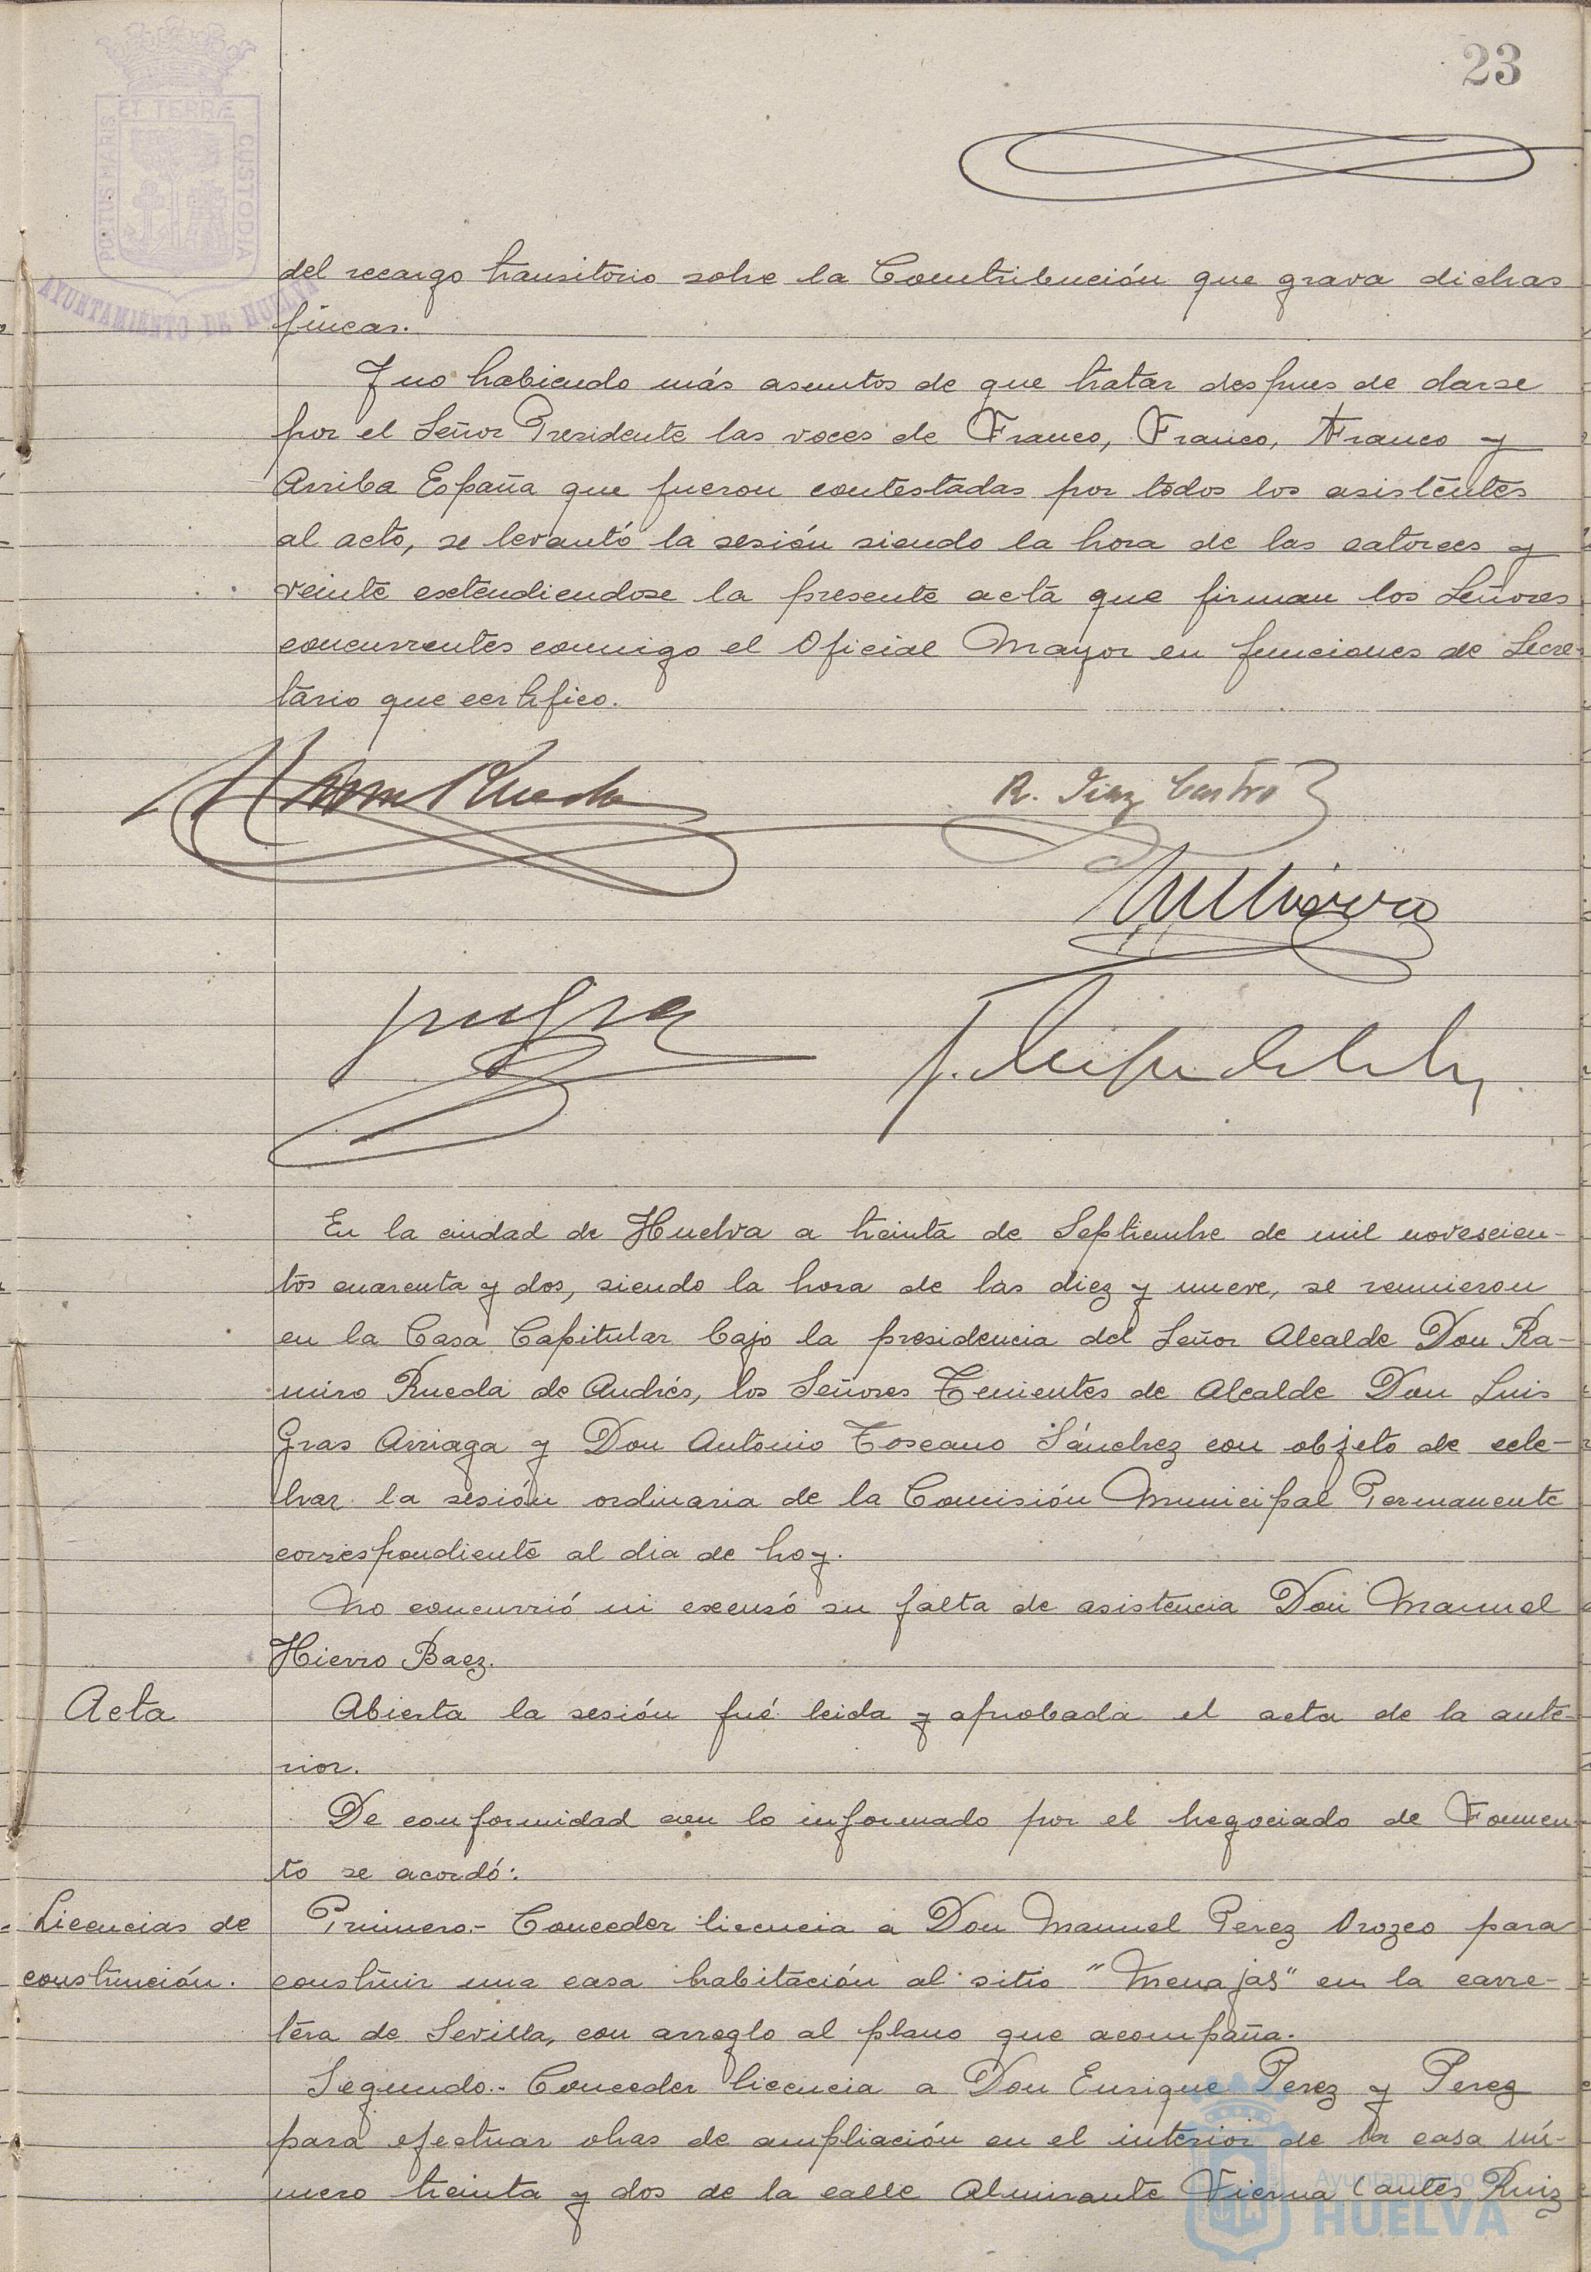 23
PORTUS MARIS
ET TERRÆ
CUSTODIA
AYUNTAMIENTO DE HUELVA
del recargo transitorio sobre la Contribución que grava dichas
fincas.
Y no habiendo más asuntos de que tratar despues de darse
por el Señor Presidente las voces de Franco, Franco, Franco y
Arriba España que fueron contestadas por todos los asistentes
al acto, se levantó la sesión siendo la hora de las catorces y
veinte extendiendose la presente acta que firman los Señores
concurrentes conmigo el Oficial Mayor en funciones de Secre-
tario que certifico.
Rueda
R. Diaz Castro
En la ciudad de Huelva a treinta de Septiembre de mil novescien-
tos cuarenta y dos, siendo la hora de las diez y nueve, se reunieron
en la Casa Capitular bajo la presidencia del Señor Alcalde Don Ra-
miro Rueda de Andrés, los Señores Tenientes de Alcalde Don Luis
Gras Arriaga y Don Antonio Toscano Sánchez con objeto de cele-
brar la sesión ordinaria de la Comisión Municipal Permanente
correspondiente al dia de hoy.
No concurrió ni excusó su falta de asistencia Don Manuel
Hierro Baez.
Acta
Abierta la sesión fué leida y aprobada el acta de la ante-
rior.
De conformidad con lo informado por el negociado de Fomen-
to se acordó:
Licencias de
construnción.
Primero.- Conceder licencia a Don Manuel Perez Orozco para
construir una casa habitación al sitio "Menajas" en la carre-
tera de Sevilla, con arreglo al plano que acompaña.
Segundo.- Conceder licencia a Don Enrique Perez y Perez
para efectuar obras de ampliación en el interior de la casa nú-
mero treinta y dos de la calle Almirante Vierna (antes Ruiz
Ayuntamiento
HUELVA